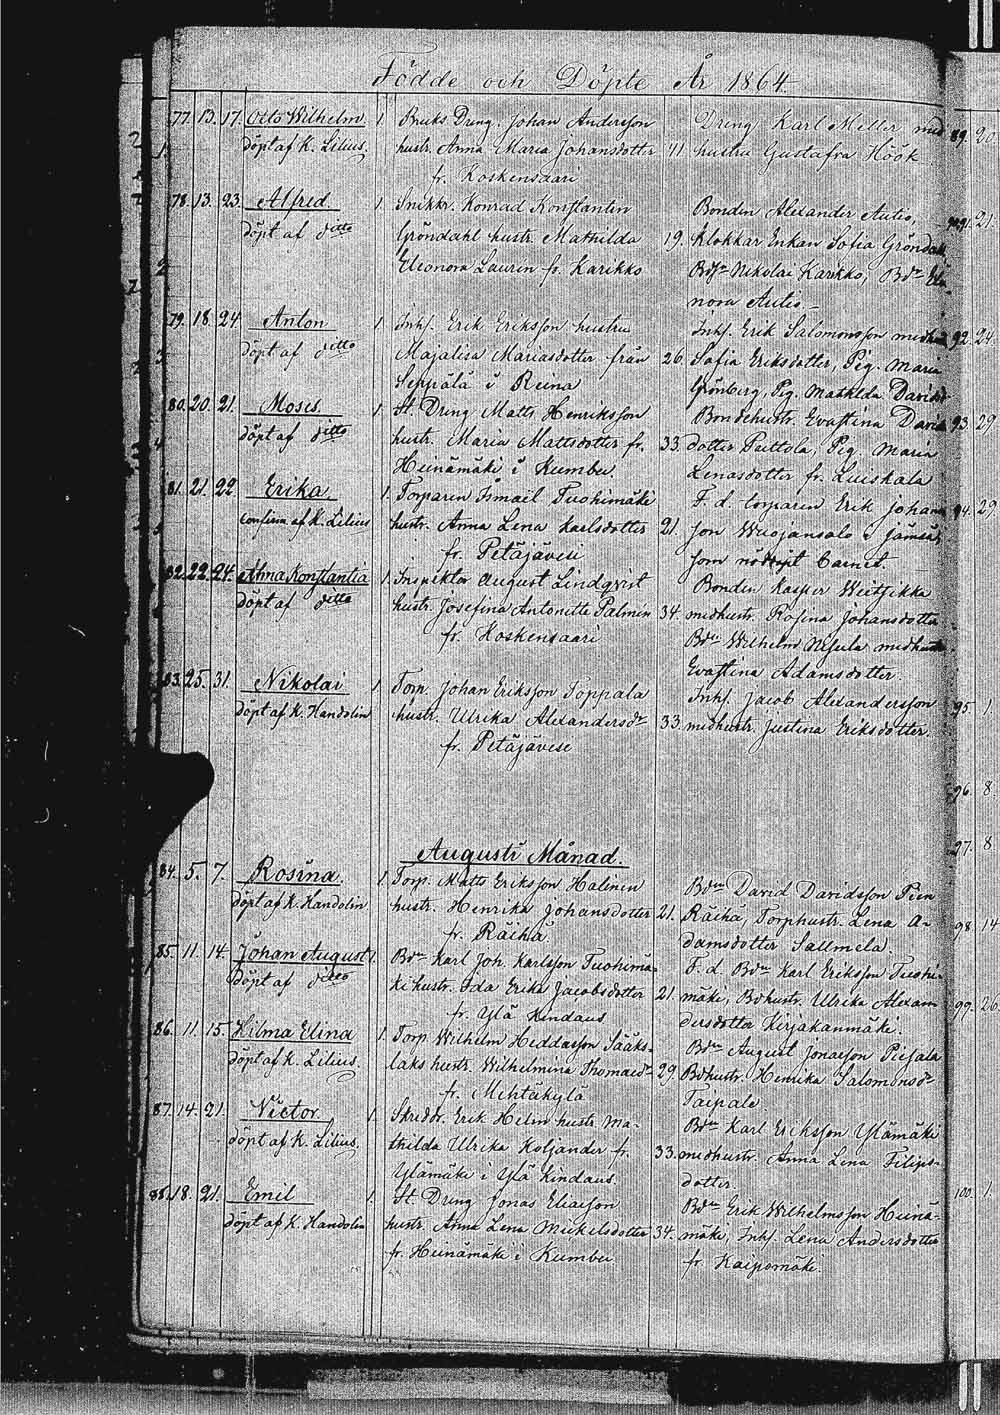 Födde och Döpte År 1864.
77. 13. 17. Otto Wilhelm 1. Bruks Dreng. Johan Andersson Dreng Karl Meller med
döpt af K. Lilius. hustr. Anna Maria Johansdotter 41. hustru Gustafva Höök
fr. Koskensaari
78. 13. 23. Alfred 1. Snikkr. Konrad Konstantin Bonden Alexander Autio,
döpt af ditto Gröndahl hustr. Mathilda 19. Klokkar Enkan Sofia Gröndahl
Eleonora Laurén fr. Karikko Nikolai Karikko,
nora Autio
79. 18. 24. Anton 1. Inhs. Erik Eriksson hustru Inhs. Erik Salomonsson med
döpt af ditto Majalisa Mariasdotter från 26. Sofia Eriksdotter, Pig. Maria
Seppälä i Reina Grönberg, Pig. Mathilda Davids
80. 20. 21. Moses. 1. St. Dreng Matts Henriksson Bondehustr. Evastina David
döpt af ditto hustr. Maria Mattsdotter fr. 33. dotter Peittola, Pig. Maria
Heinämäki i Kumbu. Lenasdotter fr. Luiskala
81. 21. 22. Erika. 1. Torparen Ismael Tuohimäki F. d. torparen Erik Johans
confirm af K. Lilius hustr. Anna Lena Karlsdotter 21. son Wuojansalo i Jämsä,
fr. Petäjävesi som nöddöpt barnet.
82. 22. 24. Alma Konstantia 1. Inspektor August Lindqvist Bonden Kasper Weitjikka
döpt af ditto hustr. Josefina Antonette Palmén 34. medhustr. Rosina Johansdotter
fr. Koskensaari Bdn Wilhelm Nisula medhustr
Evastina Adamsdotter.
83. 25. 31. Nikolai 1. Torp. Johan Eriksson Toppala Inhs. Jacob Alexandersson
döpt af K. Handolin hustr. Ulrika Alexandersdr 33. medhustr. Justina Eriksdotter.
fr. Petäjävesi
Augusti Månad.
84. 5. 7. Rosina 1. Torp. Matts Eriksson Halinen Bdn David Davidsson Pien
döpt af K. Handolin hustr. Henrika Johansdotter 21. Räihä, Torphustr. Lena A-
fr. Räihä. damsdotter Sallmela.
85. 11. 14. Johan August 1. Bdn Karl Joh. Karlsson Tuohimä- F. d. Bdn Karl Eriksson Tuohi-
döpt af ditto ki hustr. Ida Erika Jacobsdotter 21. mäki, Bdhustr. Ulrika Alexan
fr. Ylä Kindaus dersdotter Kirjakanmäki.
86. 11. 15. Hilma Elina 1. Torp Wilhelm Sääks- Bdn August Jonasson Piesala
döpt af K. Lilius laks hustr. Wilhelmina Thomasdr 29. Bdhustr. Henrika Salomonsdr
fr. Mehtäkylä Taipale.
87. 14. 21. Victor 1. Skreddr. Erik Helin hustr. Ma- Bdn Karl Eriksson Ylämäki
döpt af K. Lilius. thilda Ulrika Koljander fr. 33. medhustr. Anna Lena Filips-
Ylämäki i Ylä Kindaus. dotter
88. 18. 21. Emil 1. St. Dreng Jonas Eliasson Bdn Erik Wilhelmsson Heinä-
döpt af K. Handolin hustr. Anna Lena Mickelsdotter 34. mäki, Inhs. Lena Andersdotter
fr. Heinämäki i Kumbu fr. Kaipomäki.
89. 20.
91. 21.
92. 24.
93. 29
94. 29
95. 1.
96. 8.
97. 8
98. 14
99. 20
100. 1.